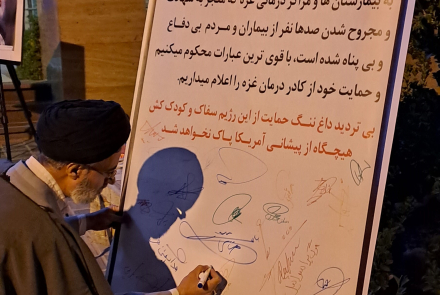 به بیمارستان ها و مراکز درمانی غزه که منجر به شهادت
و مجروح شدن صدها نفر از بیماران و مردم بی دفاع
و بی پناه شده است، با قوی ترین عبارات محکوم میکنیم
و حمایت خود از کادر درمان غزه را اعلام میداریم.
بی تردید داغ ننگ حمایت از این رژیم سفاک و کودک کش
هیچگاه از پیشانی آمریکا پاک نخواهد شد